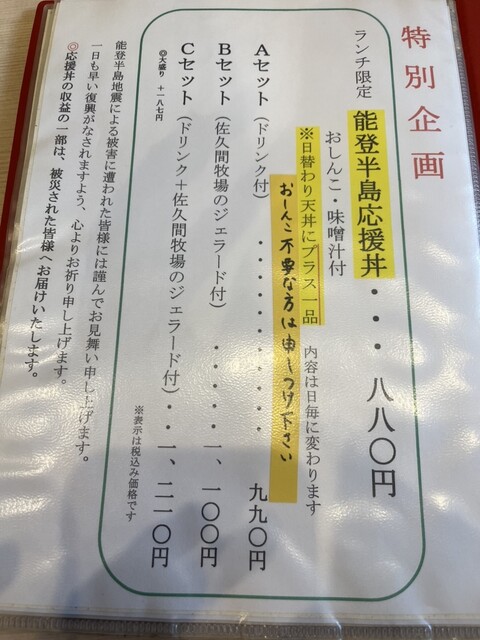 特別企画
ランチ限定
能登半島応援丼・・・八八〇円
おしんこ・味噌汁付
※日替わり天丼にプラス一品　内容は日毎に変わります
おしんこ不要な方は申しつけ下さい
Aセット（ドリンク付）・・・・・・・・・・九九〇円
Bセット（佐久間牧場のジェラード付）・・・・・一、一〇〇円
Cセット（ドリンク＋佐久間牧場のジェラード付）・・一、二一〇円
◎大盛り　＋一八七円
※表示は税込み価格です
能登半島地震による被害に遭われた皆様には謹んでお見舞い申し上げます。
一日も早い復興がなされますよう、心よりお祈り申し上げます。
◎応援丼の収益の一部は、被災された皆様へお届けいたします。